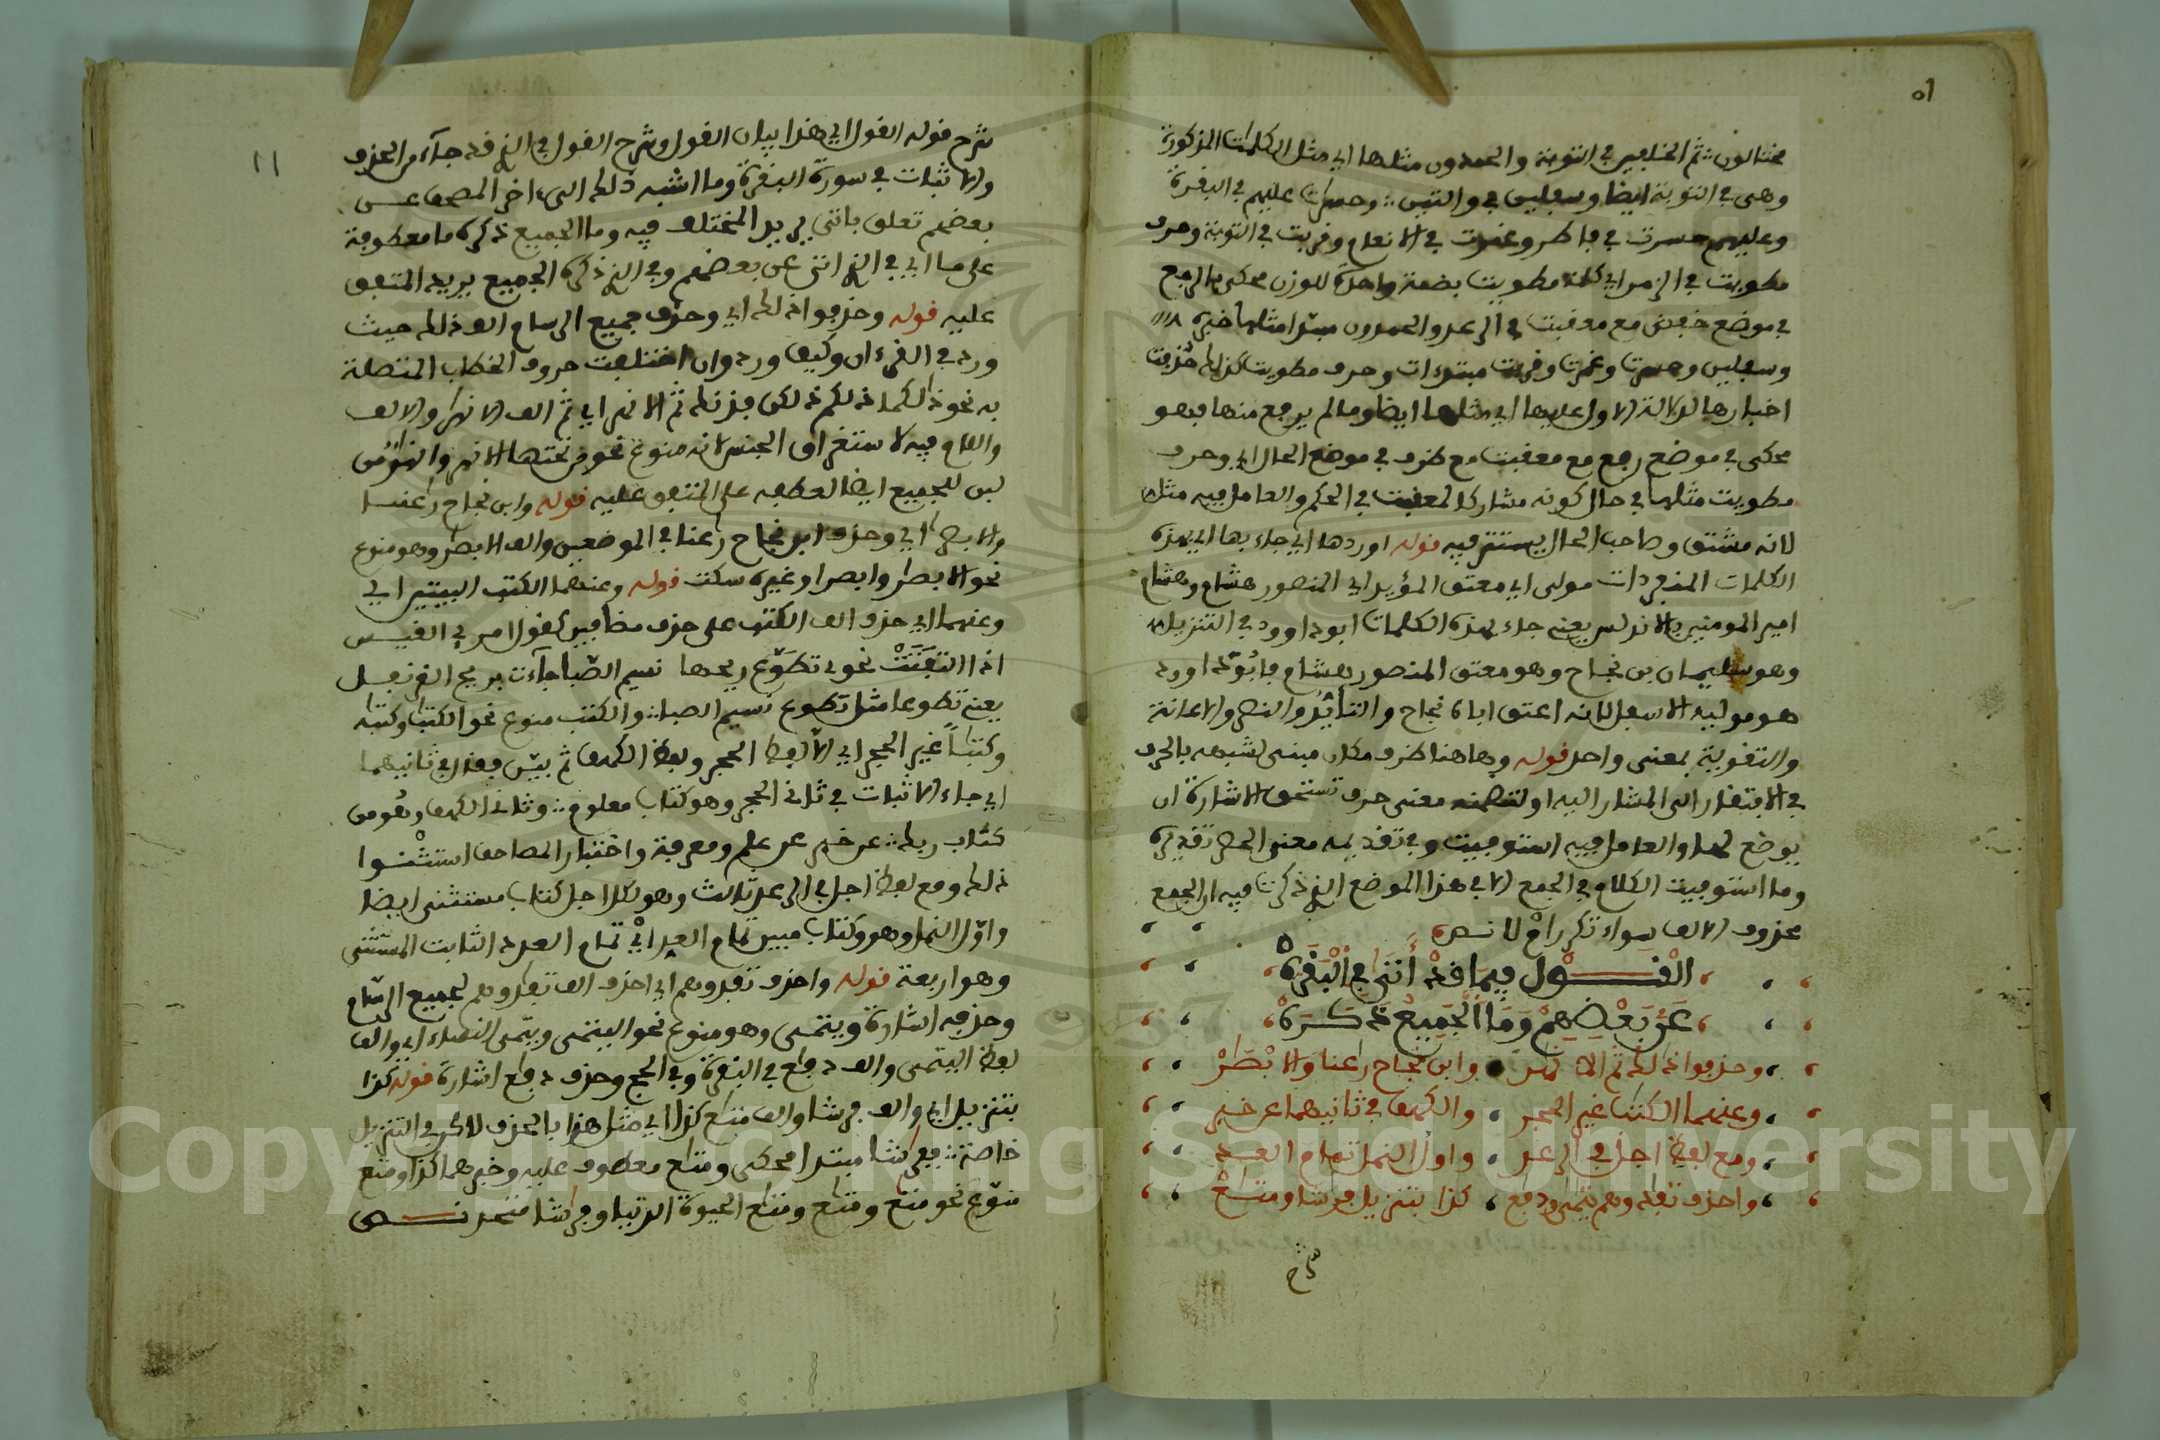 مختالون ثم الخلفين في التوبة والحمدون مثلها اي مثل الكلمات المذكورة
وهي في التوبة ايضا وسفلين في والتين وحسرات عليهم في البقرة
وعليهم حسرت في فاطر وغمرت في الانعام وقربت في التوبة وحرف
مطويت في الزمر اي كلمة مطويت بضمة واحدة للوزن محكي بالرفع
في موضع خفض مع معقبت في الرعد والحمدون مبتدا مثلها خبره
وسفلين وحسرت وغمرت وقربت مبتدءات وحرف مطويت كذلك حذفت
اخبارها لدلالة الاول عليها اي مثلها ايضا وما لم يرفع منها فهو
محكي في موضع رفع مع معقبت مع ظرف في موضع الحال اي وحرف
مطويت مثلها في حال كونه مشاركا لمعقبت في الحكم والعامل فيه مثلها
لانه مشتق وصاحب الحال يستتر فيه قوله اوردها اي جاء بها اي بهذه
الكلمات المنفردات مولى اي معتق المؤيد اي المنصور هشام وهشام
امير المومنين بالاندلس يعني جاء بهذه الكلمات ابو داوود في التنزيل
وهو سليمان بن نجاح وهو معتق المنصور هشام فابو داوود
هو موليه الاسفل لانه اعتق اباه نجاح والتأييد والنصر والاعانة
والتقوية بمعنى واحد قوله وهاهنا ظرف مكان مبني لشبهه بالحرف
في الافتقار الى المشار اليه او لتضمنه معنى حرف تستحق الاشارة ان
يوضع لها والعامل فيه استوفيت وفي تقديمه معنى الحصر تقديره
وما استوفيت الكلام في الجمع الا في هذا الموضع الذي ذكرت فيه ان الجمع
محذوف الالف سواء تكرر ام لا نص
القول فيما قد أتى في البقرة
عن بعضهم وما الجميع ذكره
وحذفوا ذلك ثم الانهر وابن نجاح راعنا والابصر
وعنهما الكتب غير الحجر والكهف في ثانيهما عن خبر
ومع لفظ اجل في الرعد واول النمل تمام العد
واحذف تفدوهم يتمى ودفع كذا بتنزيل فراشا ومتع
شرح
١١
شرح قوله القول اي هذا بيان القول وشرح القول في الذي قد جاء من الحذف
والاثبات في سورة البقرة وما اشبه ذلك الى ءاخر المصحف عن
بعضهم تعلق باتى يريد المختلف فيه وما الجميع ذكره ما معطوفة
على ما اي في الذي اتى عن بعضهم وفي الذي ذكره الجميع يريد المتفق
عليه قوله وحذفوا ذلك اي وحذف جميع الرسام الف ذلك حيث
ورد في القرءان وكيف ورد وان اختلفت حروف الخطاب المتصلة
به نحو ذلكما ذلكم ذلكن فذلك ثم الانهر اي ثم الف الانهر والالف
واللام فيه لاستغراق الجنس لانه منوع نحو من تحتها الانهر وانهر من
لبن للجميع ايضا لعطفه على المتفق عليه قوله وابن نجاح راعنا
والابصر اي وحذف ابن نجاح راعنا في الموضعين والف الابصر وهو منوع
نحو الابصر وابصرا وغيره سكت قوله وعنهما الكتب البيتين اي
وعنهما اي حذف الف الكتب على حذف مضافين كقول امرئ القيس
اذا التفتت نحوي تضوع ريحها نسيم الصبا جاءت بريح القرنفل
يعني تضوعا مثل تضوع نسيم الصبا والكتب منوع نحو الكتب وكتبه
وكتبا غير الحجر اي الا لفظ الحجر ولفظ الكهف ثم بين فقال في ثانيهما
اي جاء الاثبات في ثاني الحجر وهو كتاب معلوم وثاني الكهف وهو من
كتاب ربك عن خبر عن علم ومعرفة واختبار المصاحف استثنوا
ذلك ومع لفظ اجل في الرعد ثلاث وهو لكل اجل كتاب مستثنى ايضا
واول النمل وهو وكتاب مبين تمام العد اي تمام العدد الثابت المستثنى
وهو اربعة قوله واحذف تفدوهم اي احذف الف تفدوهم لجميع الرسام
وحذفه اشارة ويتمى وهو منوع نحو اليتمى ويتمى النساء اي والف
لفظ اليتمى والف دفع في البقرة وفي الحج وحذف دفع اشارة قوله كذا
بتنزيل اي والف فراشا والف متع كذا اي مثل هذا بالحذف لاكن في التنزيل
خاصة ففراشا مبتدا محكي ومتع معطوف عليه وخبرهما كذا ومتع
منوع نحو متع ومتع ومتع الحيوة الدنيا وفراشا متحد نص